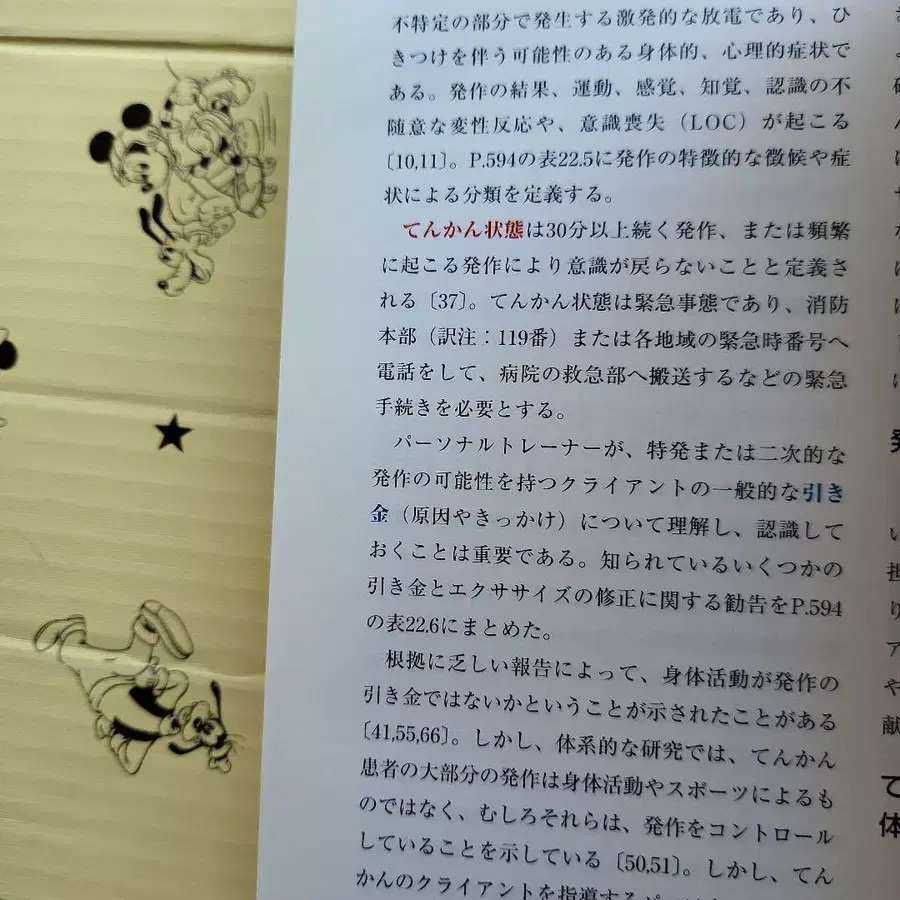 不特定の部分で発生する激発的な放電であり、ひ
きつけを伴う可能性のある身体的、心理的症状で
ある。発作の結果、運動、感覚、知覚、認識の不
随意な変性反応や、意識喪失（LOC）が起こる
〔10,11〕。P.594の表22.5に発作の特徴的な徴候や症
状による分類を定義する。
てんかん状態は30分以上続く発作、または頻繁
に起こる発作により意識が戻らないことと定義さ
れる〔37〕。てんかん状態は緊急事態であり、消防
本部（訳注：119番）または各地域の緊急時番号へ
電話をして、病院の救急部へ搬送するなどの緊急
手続きを必要とする。
パーソナルトレーナーが、特発または二次的な
発作の可能性を持つクライアントの一般的な引き
金（原因やきっかけ）について理解し、認識して
おくことは重要である。知られているいくつかの
引き金とエクササイズの修正に関する勧告をP.594
の表22.6にまとめた。
根拠に乏しい報告によって、身体活動が発作の
引き金ではないかということが示されたことがある
〔41,55,66〕。しかし、体系的な研究では、てんかん
患者の大部分の発作は身体活動やスポーツによるも
のではなく、むしろそれらは、発作をコントロール
していることを示している〔50,51〕。しかし、てん
かんのクライアントを指導する